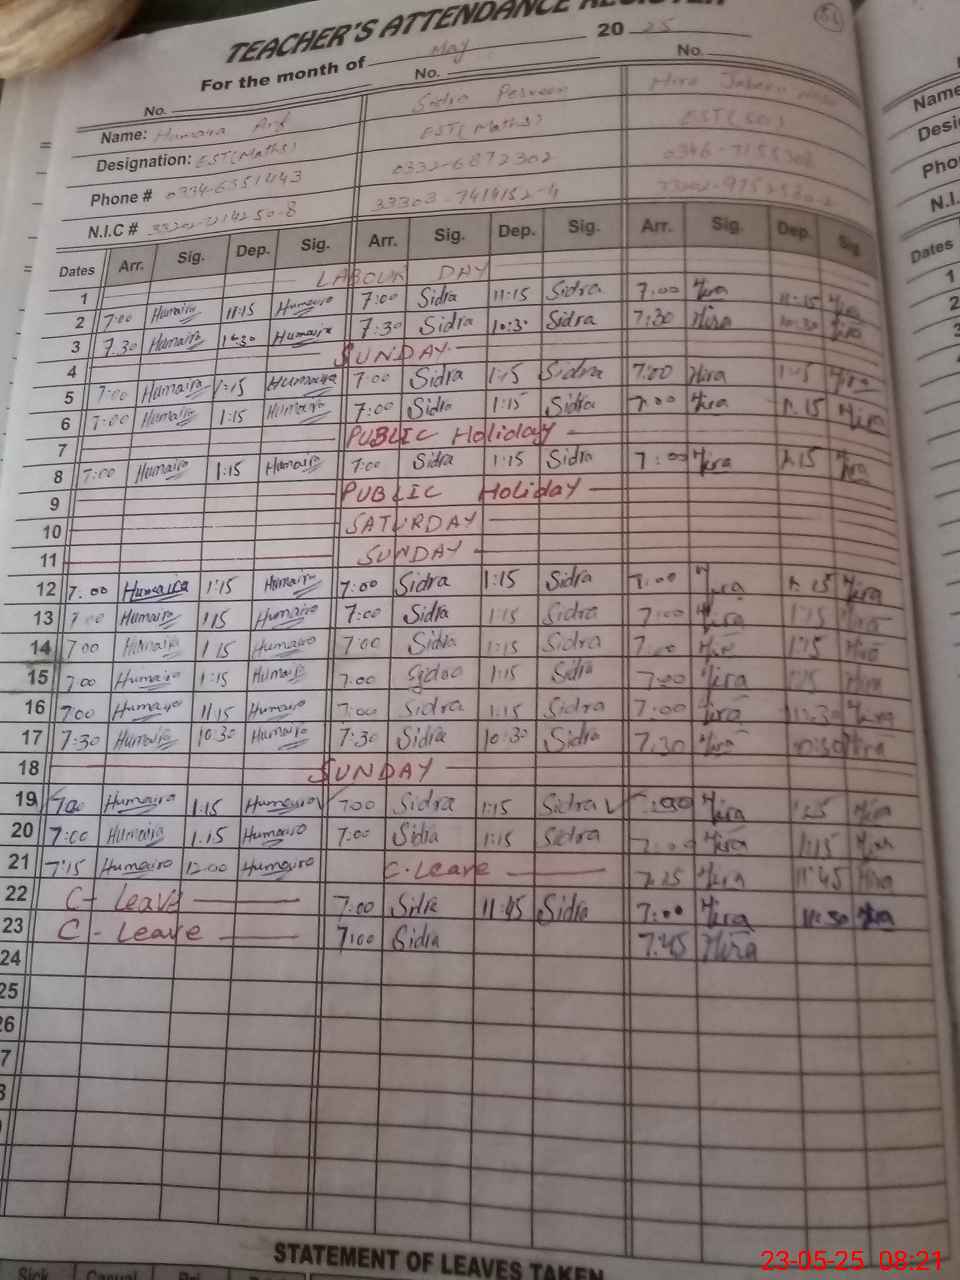 TEACHER'S ATTENDANCE REGISTER
For the month of May 20 25
No. No. No.
Name: Humaira Arif Sidra Perveen Hira Jabeen
Designation: EST(Maths) EST(Maths) EST(
Phone # 0334-6351443 0332-6872302 0346-
N.I.C # 33303-7419152-4
Dates Arr. Sig. Dep. Sig. Arr. Sig. Dep. Sig. Arr. Sig. Dep. Sig
1 LABOUR DAY
2 7:00 Humaira 11:15 Humaira 7:00 Sidra 11:15 Sidra 7:00 Hira 11:15 Hira
3 7.30 Humaira 10:30 Humaira 7:30 Sidra 10:30 Sidra 7:30 Hira 10:30 Hira
4 SUNDAY
5 7:00 Humaira 1:15 Humaira 7:00 Sidra 1:15 Sidra 7:00 Hira 1:15 Hira
6 7:00 Humaira 1:15 Humaira 7:00 Sidra 1:15 Sidra 7:00 Hira 1.15 Hira
7 PUBLIC Holiday
8 7:00 Humaira 1:15 Humaira 7:00 Sidra 1:15 Sidra 7:00 Hira 1.15 Hira
9 PUBLIC Holiday
10 SATURDAY
11 SUNDAY
12 7.00 Humaira 1:15 Humaira 7:00 Sidra 1:15 Sidra 7:00 Hira 1.15 Hira
13 7:00 Humaira 1:15 Humaira 7:00 Sidra 1:15 Sidra 7:00 Hira 1:15 Hira
14 7:00 Humaira 1:15 Humaira 7:00 Sidra 1:15 Sidra 7:00 Hira 1:15 Hira
15 7:00 Humaira 1:15 Humaira 7:00 Sidra 1:15 Sidra 7:00 Hira 1:15 Hira
16 7:00 Humaira 11:15 Humaira 7:00 Sidra 1:15 Sidra 7:00 Hira 11:30 Hira
17 7:30 Humaira 10:30 Humaira 7:30 Sidra 10:30 Sidra 7.30 Hira 10:30 Hira
18 SUNDAY
19 7:00 Humaira 1:15 Humaira 7:00 Sidra 1:15 Sidra 7:00 Hira Hira
20 7:00 Humaira 1.15 Humaira 7:00 Sidra 1:15 Sidra 7:00 Hira 1:15 Hira
21 7:15 Humaira 12:00 Humaira C-Leave 7.25 Hira 11:45 Hira
22 C- Leave 7:00 Sidra 11:45 Sidra 7:00 Hira 11:30 Hira
23 C- Leave 7:00 Sidra 7.45 Hira
24
25
26
7
STATEMENT OF LEAVES TAKEN
Sick Casual
Name
Desi
Pho
N.I.
Dates
1
2
3
23-05-25 08:21